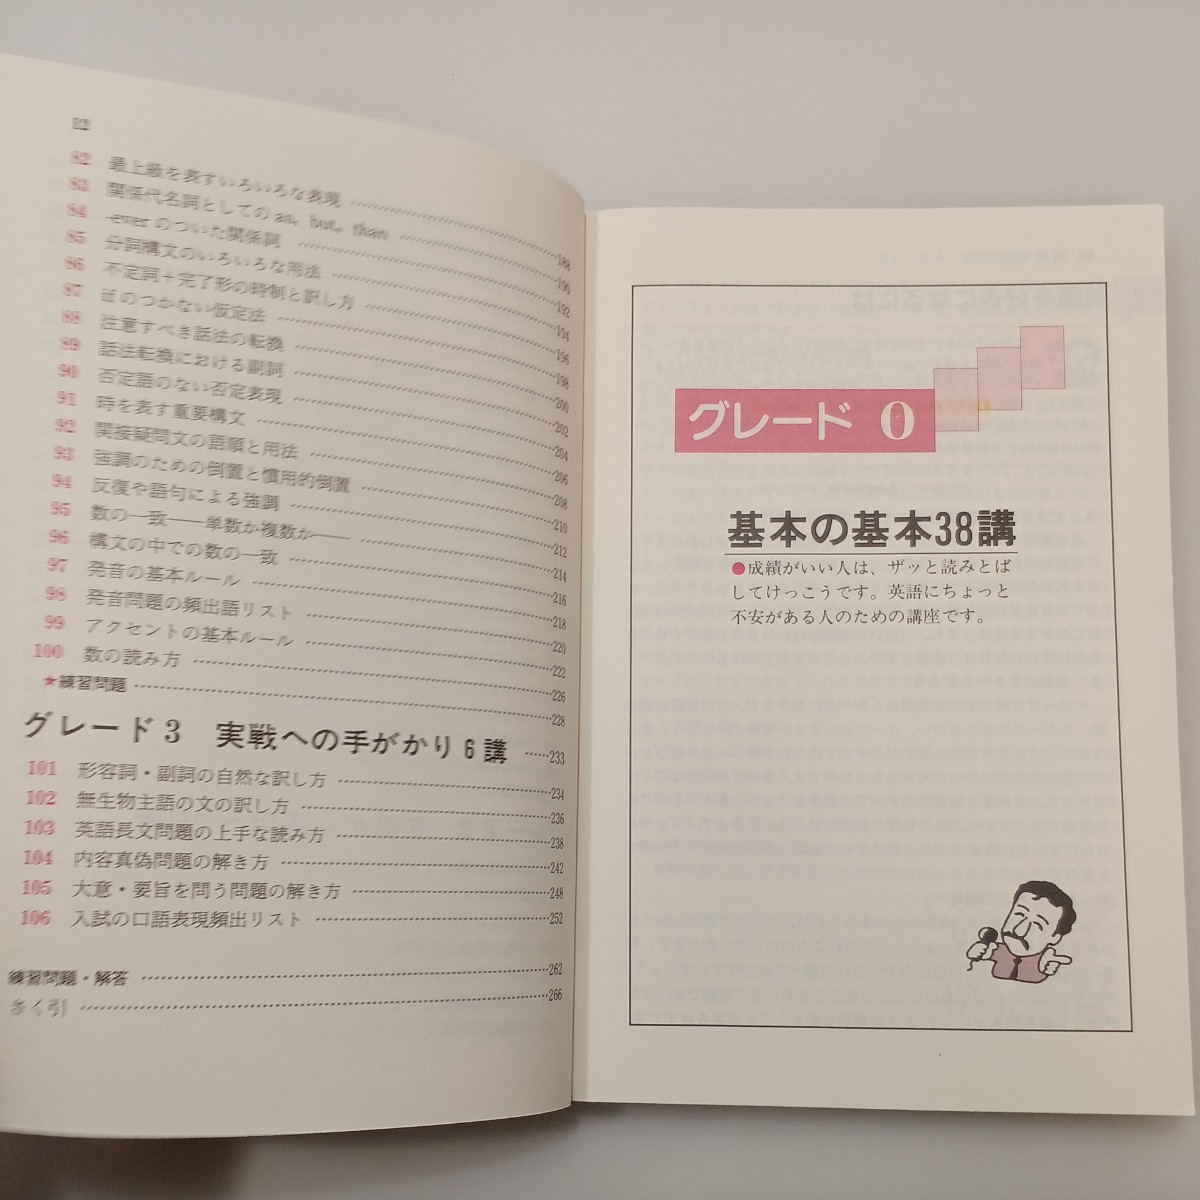 12
82 最上級を表すいろいろな表現 ……188
83 関係代名詞としての as, but, than ……190
84 -ever のついた関係詞 ……192
85 分詞構文のいろいろな用法 ……194
86 不定詞＋完了形の時制と訳し方 ……196
87 if のつかない仮定法 ……198
88 注意すべき話法の転換 ……200
89 話法転換における副詞 ……202
90 否定語のない否定表現 ……204
91 時を表す重要構文 ……206
92 間接疑問文の語順と用法 ……208
93 強調のための倒置と慣用的倒置 ……210
94 反復や語句による強調 ……212
95 数の一致――単数か複数か―― ……214
96 構文の中での数の一致 ……216
97 発音の基本ルール ……218
98 発音問題の頻出語リスト ……220
99 アクセントの基本ルール ……222
100 数の読み方 ……226
★練習問題 ……228
グレード3 実戦への手がかり6講 ……233
101 形容詞・副詞の自然な訳し方 ……234
102 無生物主語の文の訳し方 ……236
103 英語長文問題の上手な読み方 ……238
104 内容真偽問題の解き方 ……242
105 大意・要旨を問う問題の解き方 ……248
106 入試の口語表現頻出リスト ……252
練習問題・解答 ……262
さく引 ……266
グレード 0
基本の基本38講
●成績がいい人は、ザッと読みとば
してけっこうです。英語にちょっと
不安がある人のための講座です。